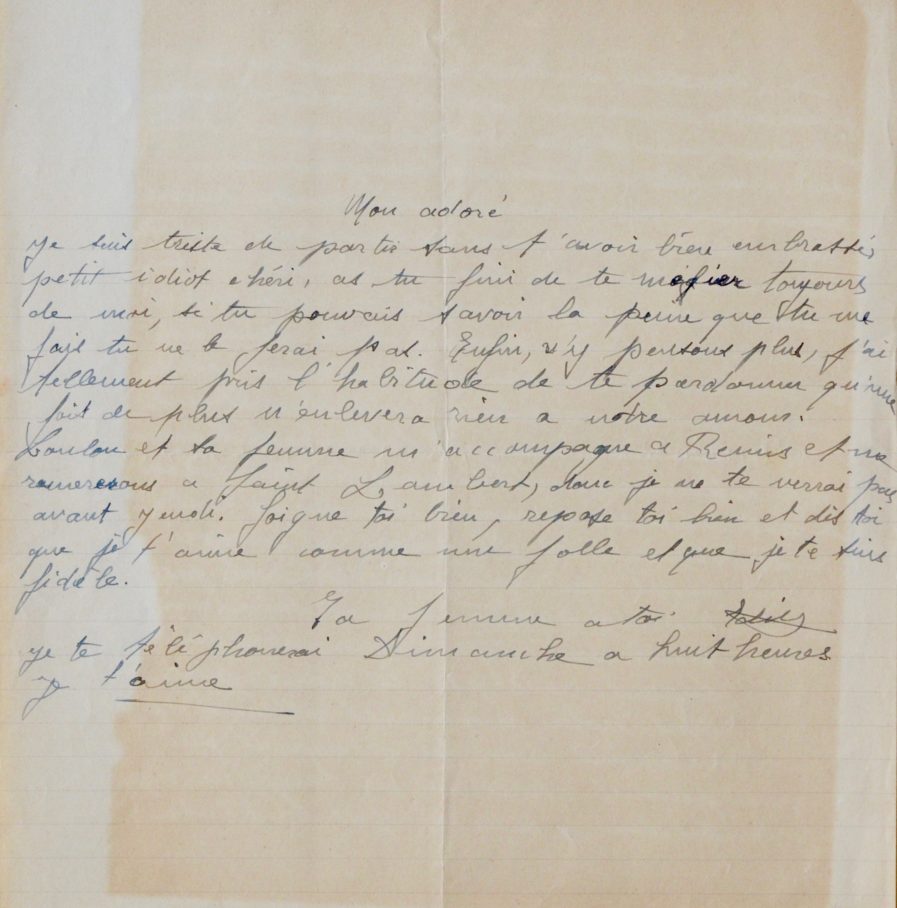 Mon adoré
Je suis triste de partir sans t'avoir bien embrassé,
petit idiot chéri, as tu fini de te mefier toujours
de moi, si tu pouvais savoir la peine que tu me
fais tu ne le ferai pas. Enfin, n'y pensons plus, j'ai
tellement pris l'habitude de te pardonner qu'une
fois de plus n'enlevera rien a notre amour.
Loulou et sa femme m'accompagne a Reims et me
a Saint Lambert, donc je ne te verrai pas
avant jeudi. Soigne toi bien, repose toi bien et dis toi
que je t'aime comme une folle et que je te suis
fidèle.
Ta femme a toi
Je te téléphonerai Dimanche a huit heures
Je t'aime